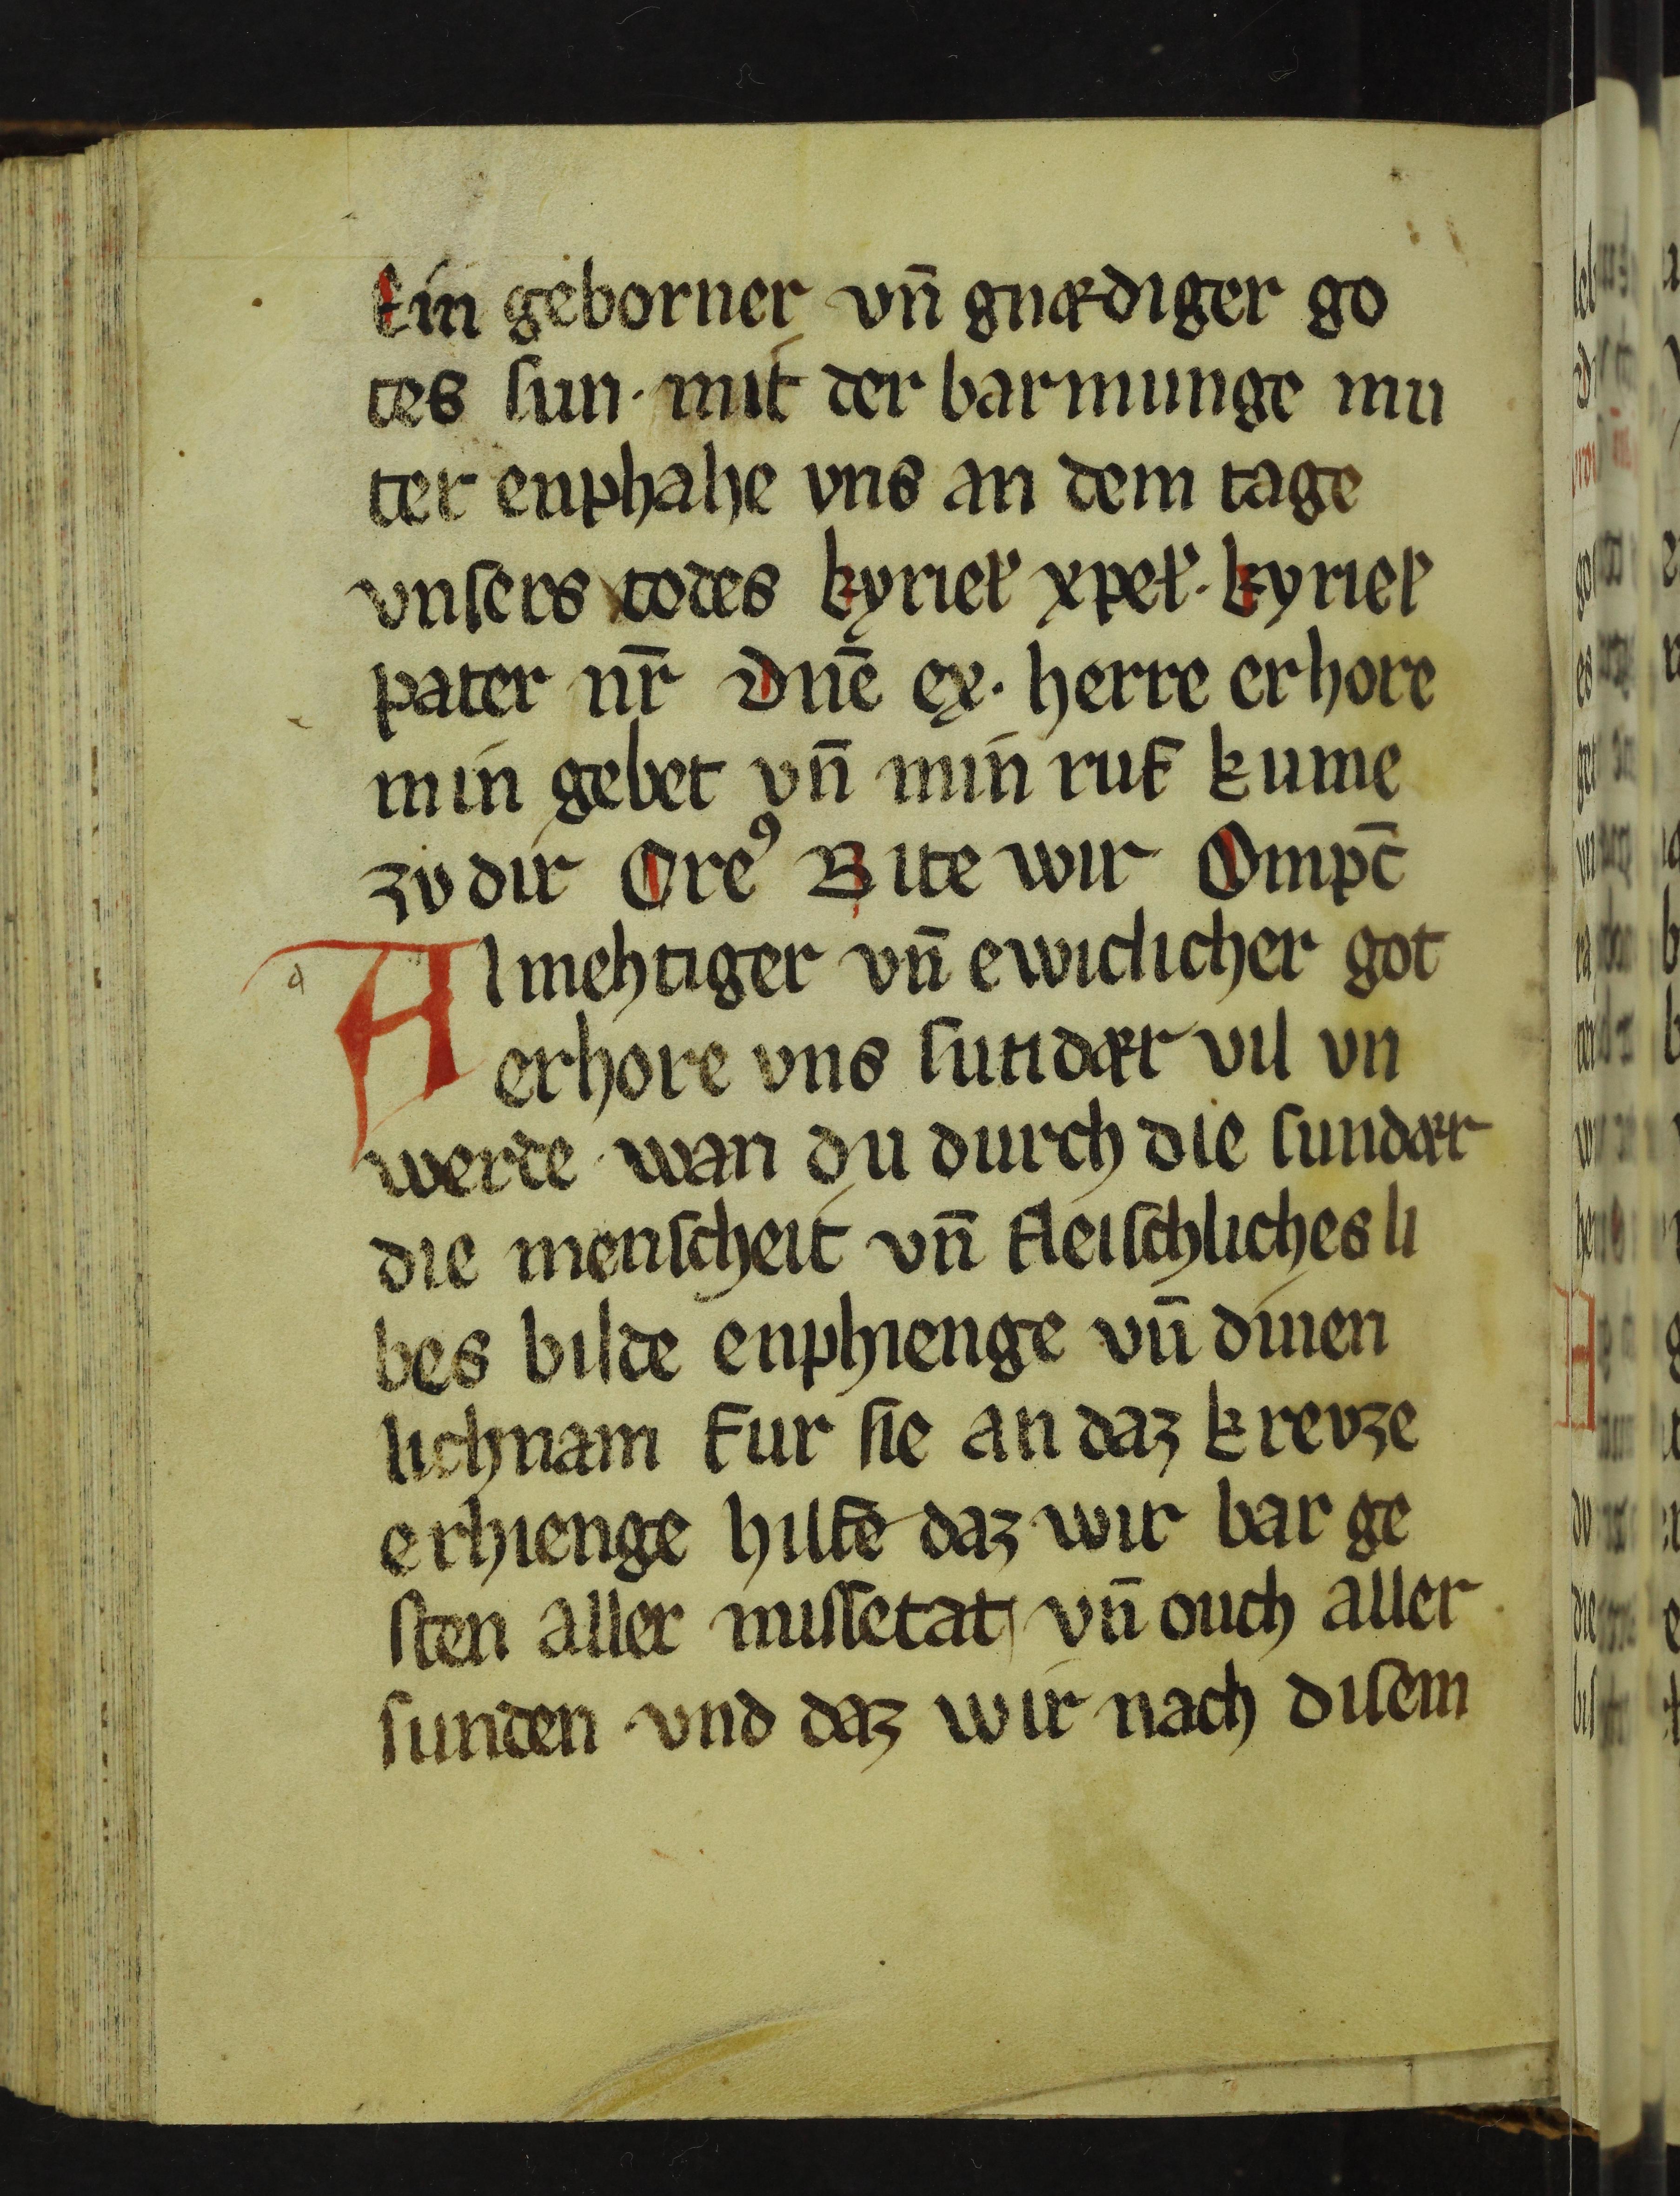 Ein geborner vn̄ gnædiger go
tes ſun · mit der barmunge mu
ter enphahe vns an dem tage
vnſers todes kyriel᷑ xpel᷑ · kyriel᷑
pater nr̄ Dnē ex · herre erhore
min gebet vn̄ min ruf kume
zv dir Oreꝰ Bite wir Ompc̄
Almehtiger vn̄ ewiclicher got
erhore vns ſundær vil vn
werde · wan du durch die ſundær
die menſcheit vn̄ fleiſchliches li
bes bilde enphienge vn̄ dinen
lichnam fur ſie an daz krevze
erhienge hilfe daz wir bar ge
ſten aller miſſetat vn̄ ouch aller
ſunden vnd daz wir nach diſem